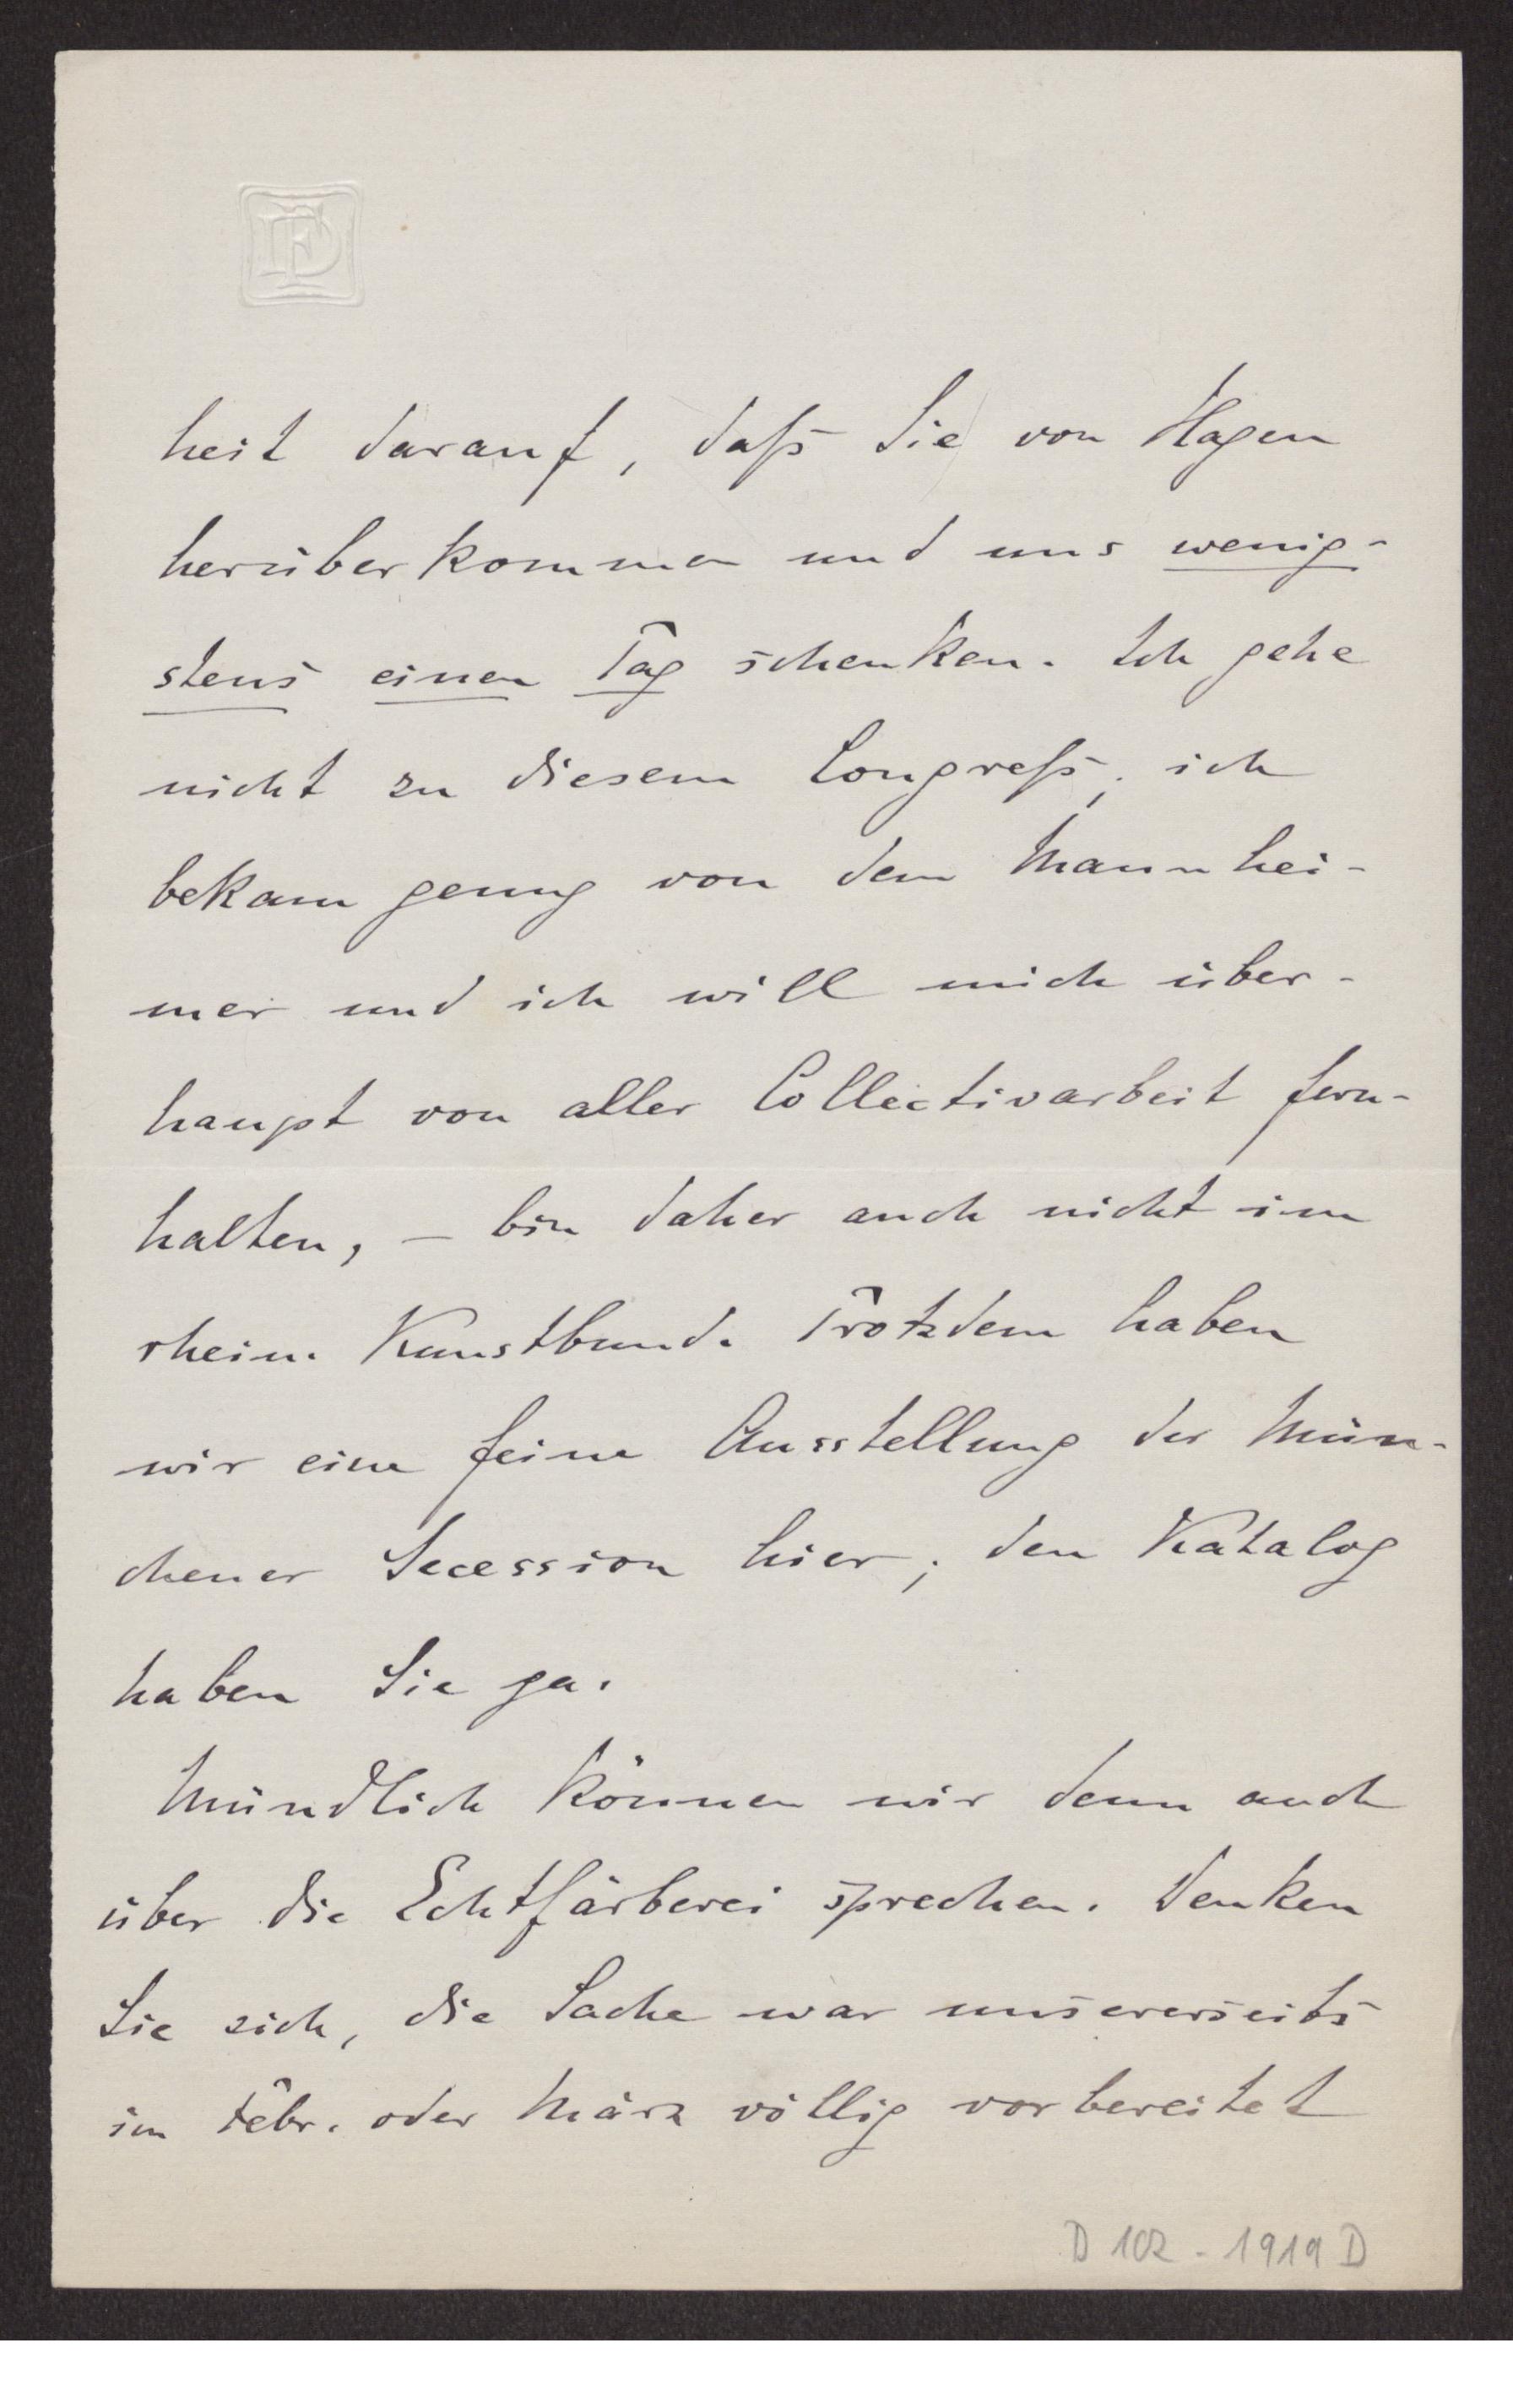 heit darauf, daß Sie von Hagen
herüberkommen und uns wenig-
stens einen Tag schenken. Ich gehe
nicht zu diesem Congreß; ich
bekam genug von dem Mannhei-
mer und ich will mich über-
haupt von aller Collectivarbeit fern-
halten, – bin daher auch nicht im
rhein. Kunstbund. Trotzdem haben
wir eine feine Ausstellung der Mün-
chener Secession hier; den Katalog
haben Sie ja.
Mündlich können wir denn auch
über die Echtfärberei sprechen. Denken
Sie sich, die Sache war unsererseits
im Febr. oder März völlig vorbereitet
D 102 - 1919 D